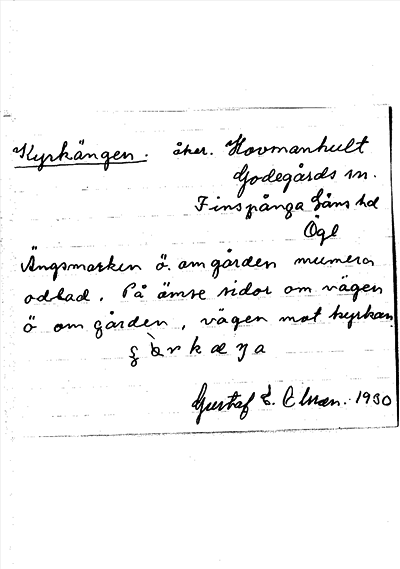 Kyrkängen. åker. Hovmanhult
Godegårds sn.
Finspånga läns hd
Ögl
Ängsmarken ö. om gården numera
odlad. På ömse sidor om vägen
ö om gården, vägen mot kyrkan.
Gustaf E. 1930